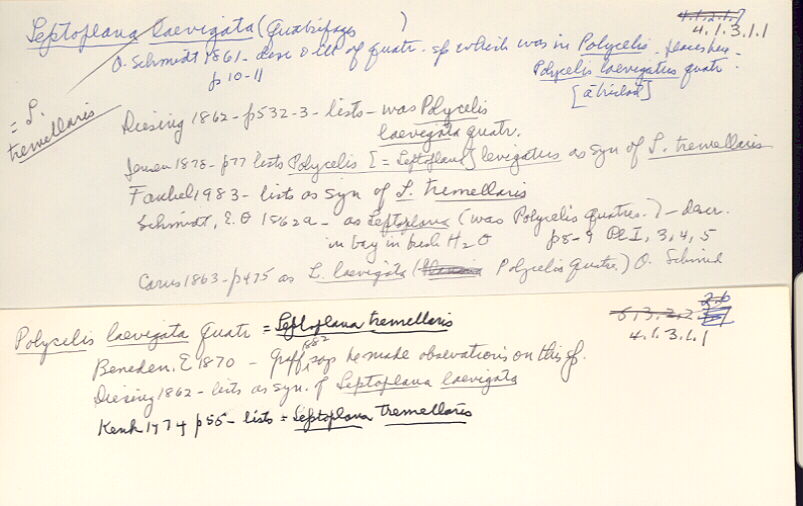 Leptoplana laevigata (Quatrefages )
4.1.3.1.1
O. Schmidt 1861 - desc & ill of quatr. sp which was in Polycelis -
p 10-11
Polycelis laevigatus quatr.
= L.
tremellaris
Diesing 1862 - p532-3 - lists - was Polycelis
laevigata quatr.
Jensen 1878 - p77 lists Polycelis [= Leptoplana] levigatus as syn of L. tremellaris
Faubel 1983 - lists as syn of L. tremellaris
Schmidt, E.O 1862a - as Leptoplana (was Polycelis quatref.) - descr.
in bay in fresh H2O p8-9 Pl I, 3, 4, 5
Carus 1863 - p475 as L. laevigata ( Polycelis Quatre.) O. Schmid
Polycelis laevigata Quatr = Leptoplana tremellaris
6.1.3.2.2 2.6
4.1.3.1.1
Beneden, E 1870 - Graff, 1882 says he made observations on this sp.
Diesing 1862 - lists as syn. of Leptoplana laevigata
Kenk 1974 p55 - lists = Leptoplana tremellaris